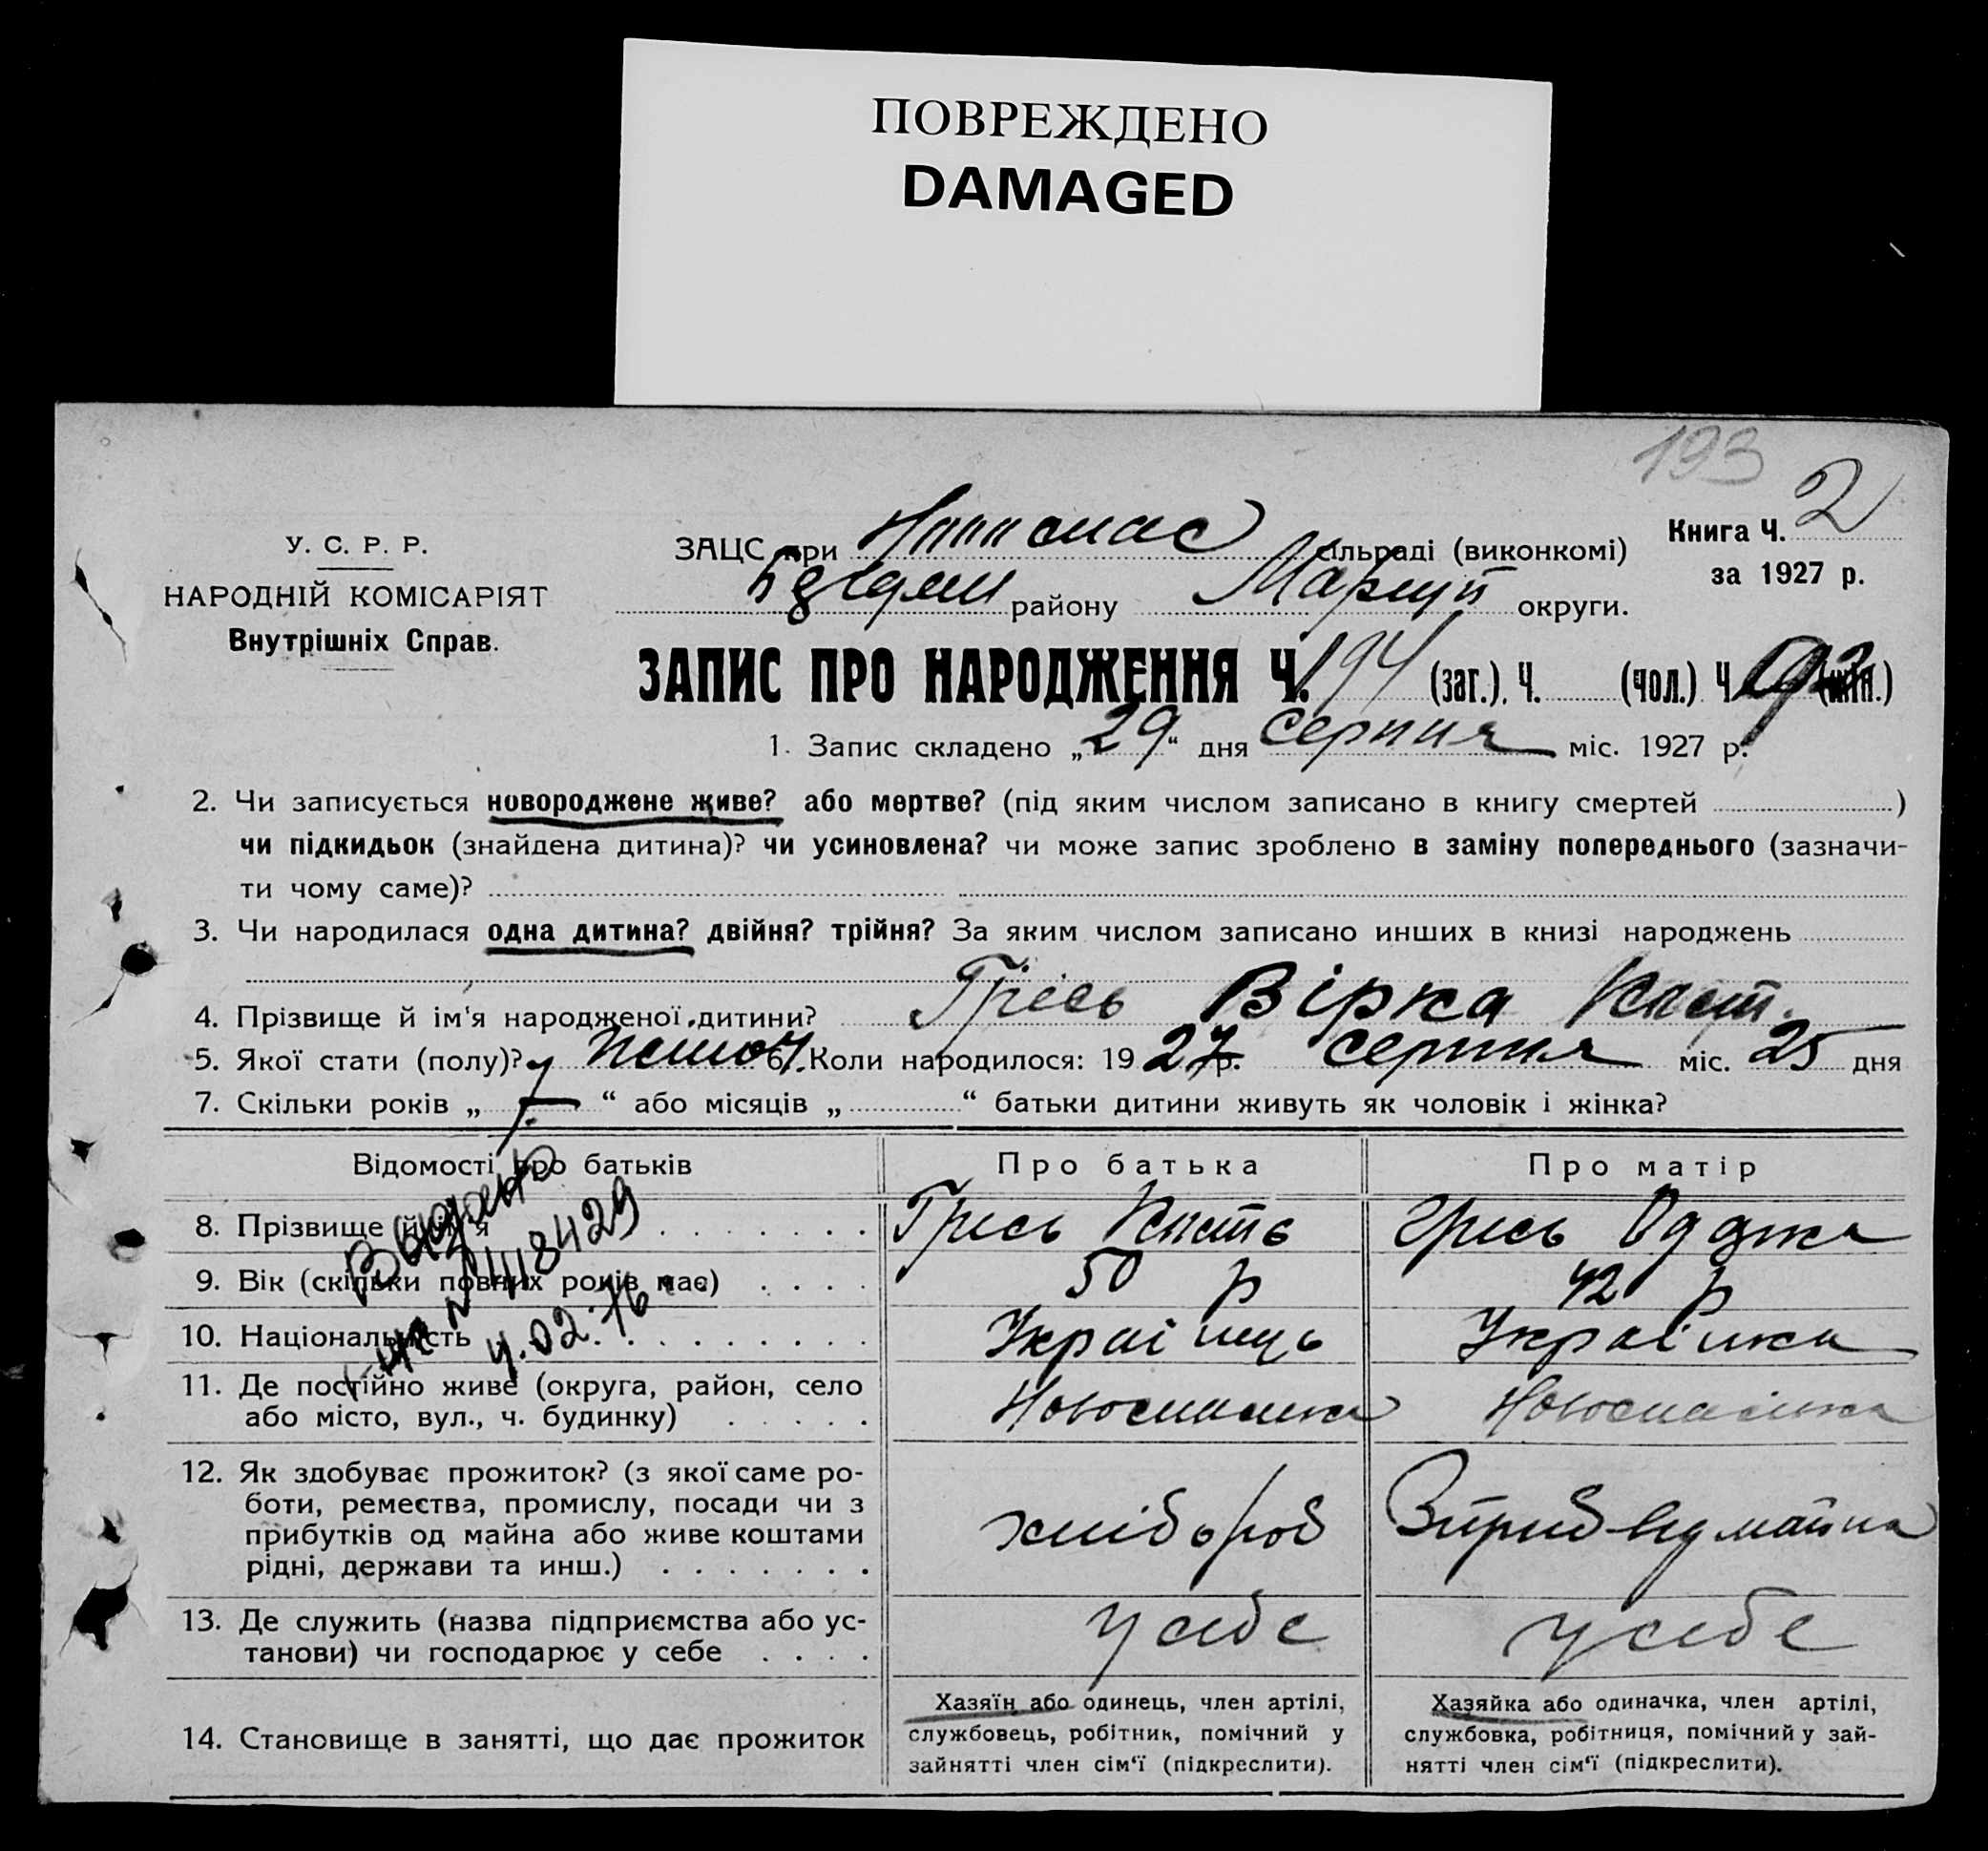 ПОВРЕЖДЕНО
DAMAGED
193
У. С. Р. Р.
НАРОДНІЙ КОМІСАРІЯТ
Внутрішніх Справ.
ЗАЦС при сільраді (виконкомі)
району Маріуп округи.
Книга Ч. 2
за 1927 р.
ЗАПИС ПРО НАРОДЖЕННЯ Ч. 194 (заг.). Ч. (чол.) Ч. 92 (жін.)
1. Запис складено „29“ дня Серпня міс. 1927 р.
2. Чи записується новороджене живе? або мертве? (під яким числом записано в книгу смертей )
чи підкидьок (знайдена дитина)? чи усиновлена? чи може запис зроблено в заміну попереднього (зазначи-
ти чому саме)?
3. Чи народилася одна дитина? двійня? трійня? За яким числом записано инших в книзі народжень
4. Прізвище й ім'я народженої дитини? Грісь Вірка Кост.
5. Якої стати (полу)? жіноч. 6. Коли народилося: 1927 р. Серпня міс. 25 дня
7. Скільки років „ “ або місяців „ “ батьки дитини живуть як чоловік і жінка?
Відомості про батьків Про батька Про матір
8. Прізвище й ім'я Грись Кость Грись Одарка
9. Вік (скільки повних років має) 50 р 42 р
10. Національність Українць Українка
11. Де постійно живе (округа, район, село
або місто, вул., ч. будинку) Новоспасівка Новоспасівка
12. Як здобуває прожиток? (з якої саме ро-
боти, ремества, промислу, посади чи з
прибутків од майна або живе коштами
рідні, держави та инш.) хлібороб
13. Де служить (назва підприємства або ус-
танови) чи господарює у себе у себе у себе
14. Становище в занятті, що дає прожиток
Хазяїн або одинець, член артілі,
службовець, робітник, помічний у
зайнятті член сім'ї (підкреслити).
Хазяйка або одиначка, член артілі,
службовка, робітниця, помічний у зай-
нятті член сім'ї (підкреслити).
Видано
№ 418429
4.02.76